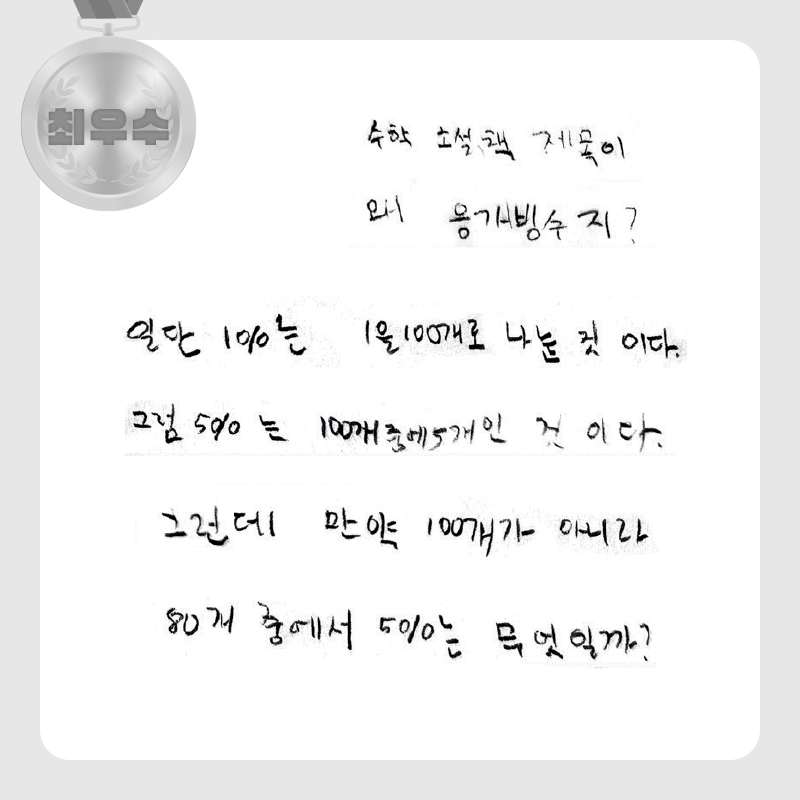 최우수
수학 소설책 제목이
왜 용개빙수지?
일단 1%는 1을100개로 나눈 것 이다.
그럼 5%는 100개중에5개인 것 이다.
그런데 만약 100개가 아니라
80개 중에서 5%는 무엇일까?